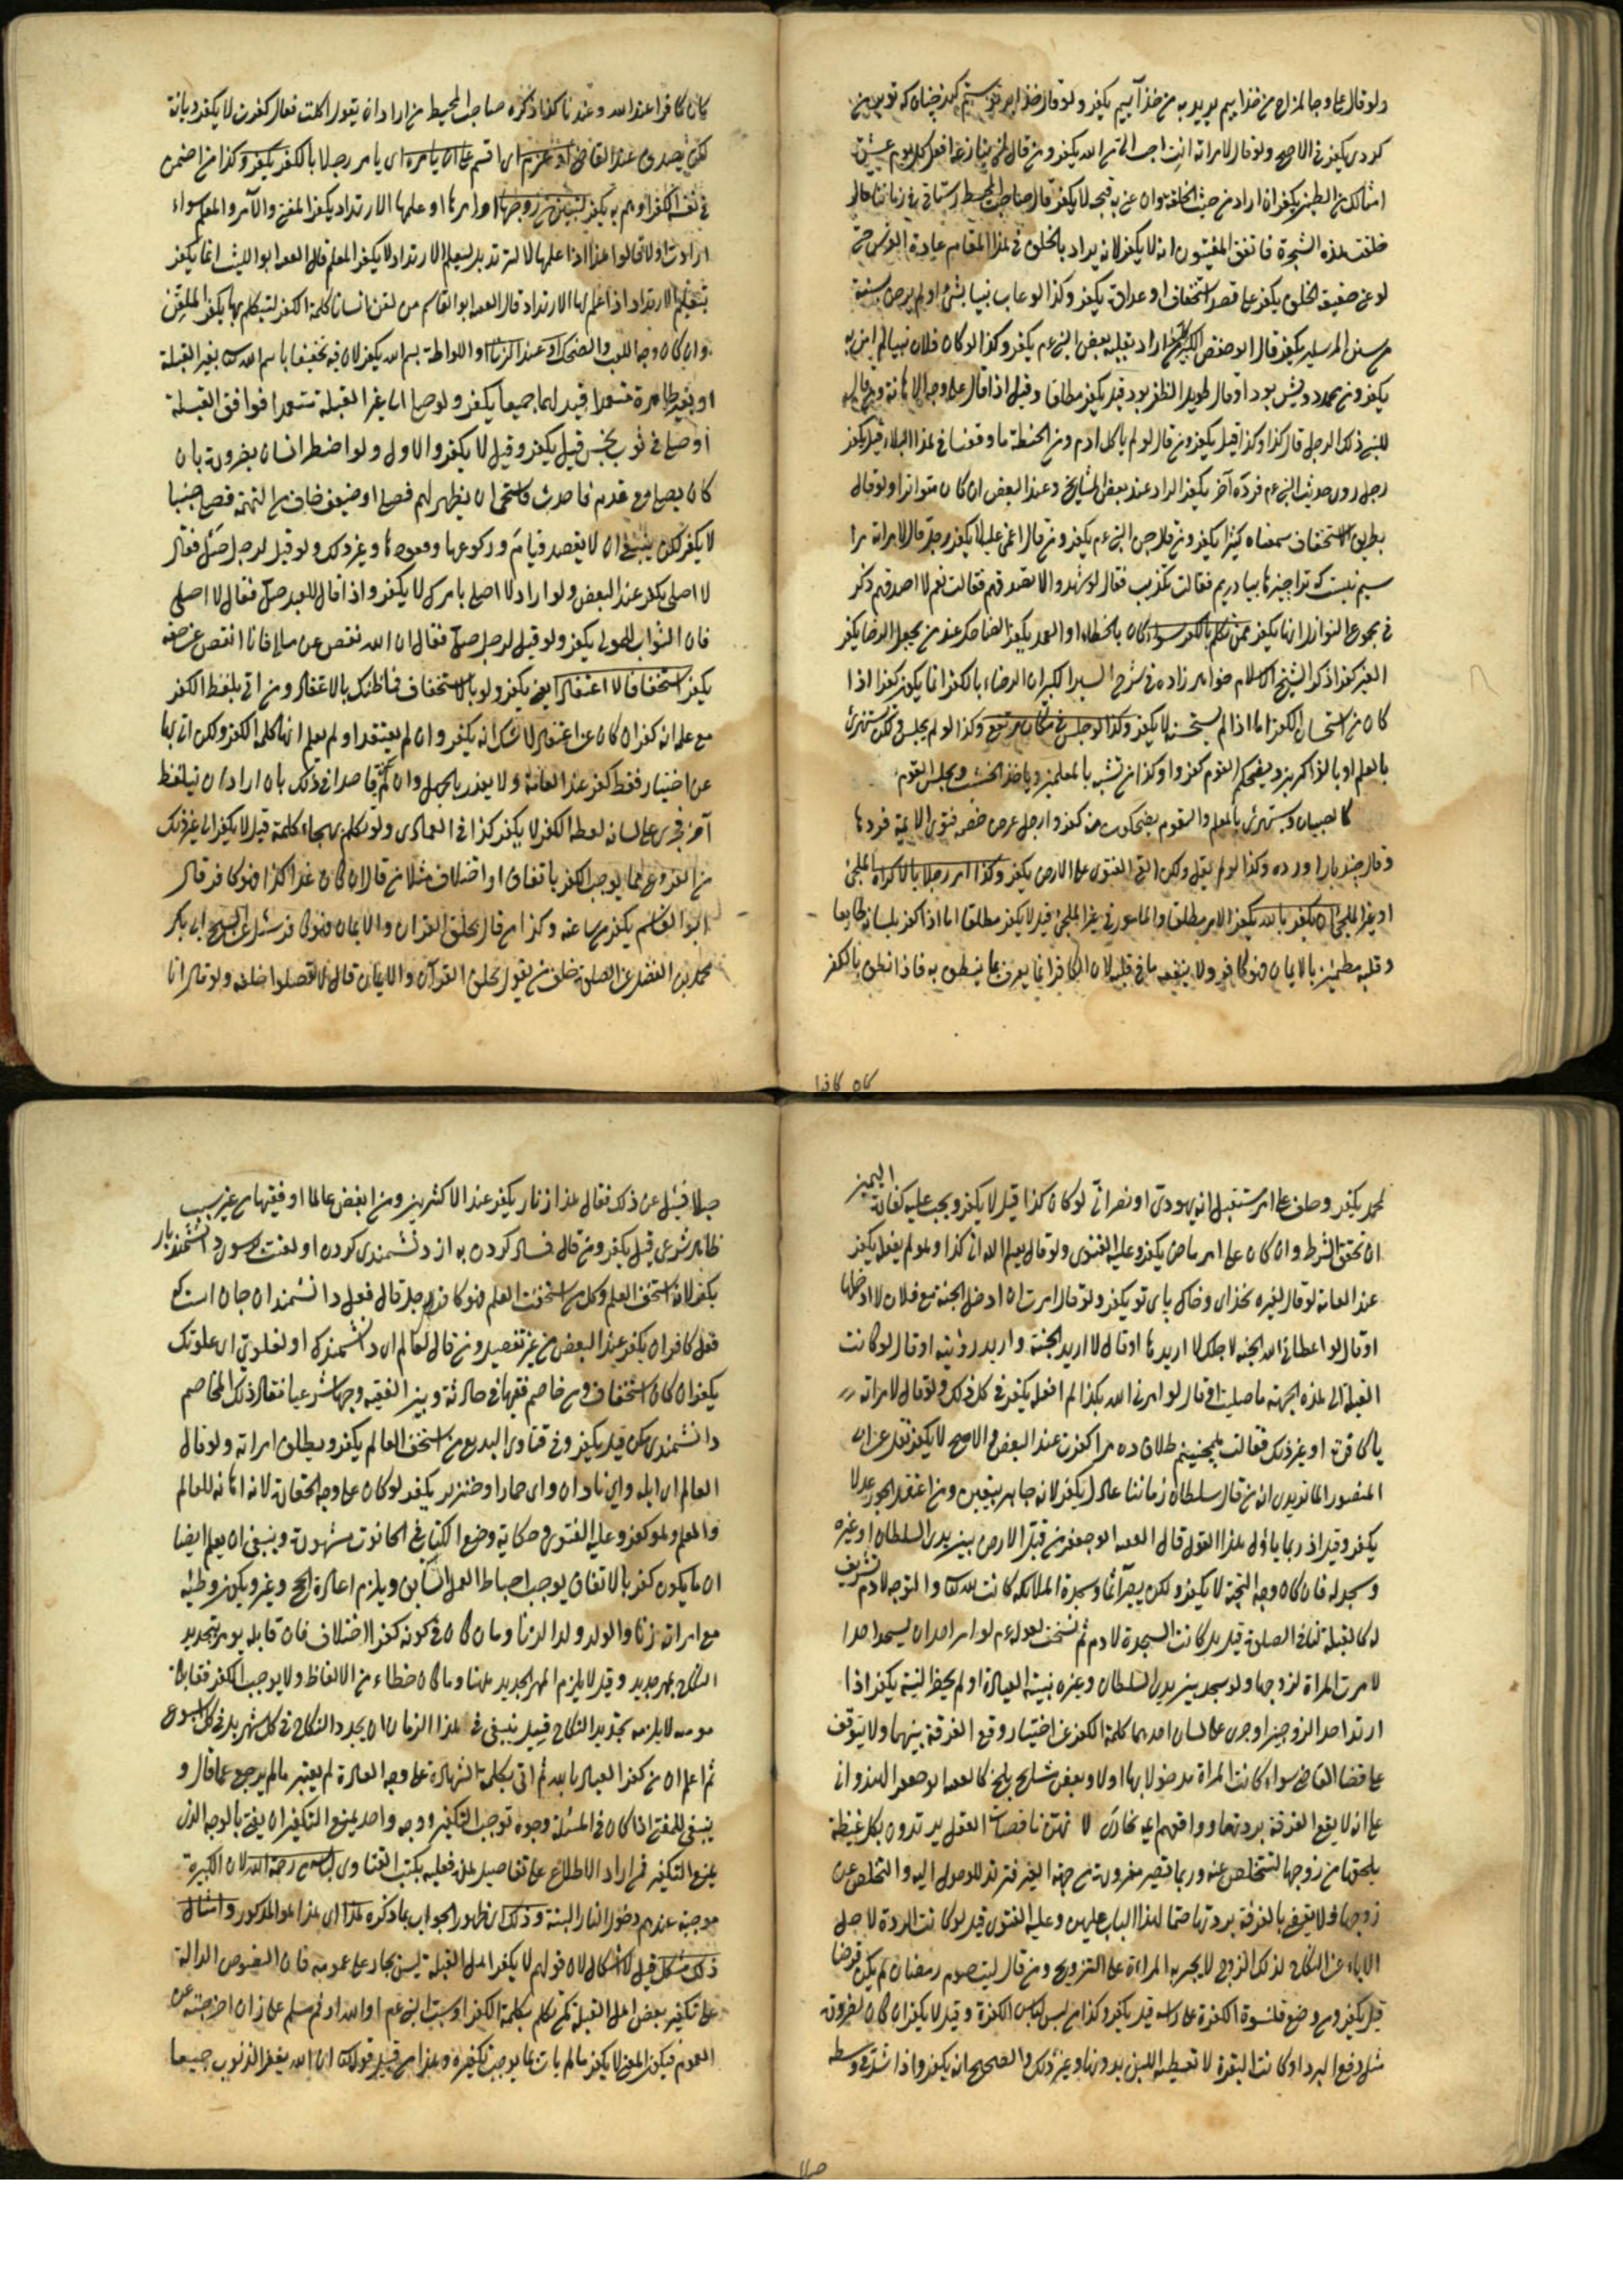 ولو قال على وجه المزاح من خدا بيم يكفر ولو قال
كردى يكفر فى الاصح ولو قال لامراته انت احب الى من الله يكفر ومن قال
امثالك من الطين يكفر ان اراد من حيث الخلقة وان عنى به قبحه لا يكفر قال صاحب المحيط فى زماننا قال
خلقت هذه الشجرة فاتفق المفتيون انه لا يكفر لانه يراد بالخلق فى هذا المقام عادة الغرس حتى
لو عنى حقيقة الخلق يكفر على قصد استخفاف او عداوة يكفر وكذا لو عاب نبيا بشئ او لم يرض بسنة
من سنن المرسلين يكفر قال ابو حفص الكبير اراد بقلبه بغض النبى عم يكفر وكذا لو كان فلان نبيا لم اومن به
يكفر ومن محمد درويش بود او قال طويل الظفر بود قيل يكفر مطلقا وقيل اذا قال على وجه الاهانة ومن قال
للنبى ذلك الرجل قال كذا وكذا قيل يكفر ومن قال لو لم ياكل ادم من الحنطة ما وقعنا فى هذا البلاء قيل يكفر
رجل روى حديث النبى عم فرده آخر يكفر الراد عند بعض المشايخ وعند البعض ان كان متواترا ولو قال
بطريق الاستخفاف سمعناه كثيرا يكفر ومن قال جن النبى عم يكفر ومن قال اغمى عليه لا يكفر رجل قال لامراته مرا
سيم نيست فقالت تكذب فقال لو شهد والا تصدقهم فقالت نعم لا اصدقهم ذكر
فى مجموع النوازل انها يكفر من تكلم بالكفر سواء كان بالخطاء او العمد يكفر الضاحك عند من يجعل الرضا بكفر
الغير كفرا ذكر الشيخ الاسلام خواهر زاده فى شرح السير الكبير ان الرضاء بالكفر انما يكون كفرا اذا
كان من استحسان الكفر اما اذا لم يستحسنه لا يكفر وكذا لو جلس فى مكان مرتفع وكذا لو لم يجلس لكن يستهزئ
بالعلم او بالذاكرين ويضحكهم القوم كفروا وكذا من تشبه بالمعلمين وياخذ الخشب ويجلس القوم
كالصبيان ويستهزئ بالمعلم والقوم يضحكون منه كفروا رجل عرض خصمه فتوى الايمة فردها
وقال چند بار آورده وكذا لو لم يقل ولكن القى الفتوى على الارض يكفر وكذا امر رجلا بالاكراه الملجئ
او بغير الملجئ ان يكفر بالله يكفر الامر مطلقا والمامور فى غير الملجئ قيل لا يكفر مطلقا اما اذا كفر بلسانه طايعا
وقلبه مطمئن بالايمان فهو كافر ولا ينفعه ما فى قلبه لان الكافر انما يعرف بما ينطق به فاذا نطق بالكفر
كان كافرا
كان كافرا عند الله وعندنا كذا ذكره صاحب المحيط من اراد ان يقول اكلت فقال كفرت لا يكفر ديانة
لكن يصدق عند القاضى او عزم اى اقسم على ان يامره اى يامر رجلا بالكفر يكفر وكذا من اضمر
فى نفسه الكفر او هم به يكفر لتبين من زوجها او امرها او علمها الارتداد يكفر المفتى والآمر والمعلم سواء
ارادت اولا قالوا هذا اذا علمها لا لترتد بل ليعلم الارتداد لا يكفر المعلم قال الفقيه ابو الليث انما يكفر
بتعليم الارتداد اذا علم لها الارتداد قال الفقيه ابو القاسم من لقن انسانا كلمة الكفر ليتكلم بها يكفر الملقن
وان كان وجه اللعب والضحك او عند الزنا او اللواطة بسم الله يكفر لان فيه تخفيفا باسم الله تعالى بغير القبلة
او بغير طهارة متعمدا قيد لهما جميعا يكفر ولو صلى الى غير القبلة متعمدا فوافق القبلة
او صلى فى ثوب نجس قيل يكفر وقيل لا يكفر والاول ولو اضطر انسان بضرورة بان
كان يصلى مع قدم فاحدث فاستحى ان يظهر لهم فصلى او ضيف خاف من التهمة فصلى جنبا
لا يكفر لكن ينبغى ان لا يقصد قيامه وركوعها وقعودها وغير ذلك ولو قيل لرجل صل فقال
لا اصلى يكفر عند البعض ولو اراد لا اصلى بامرك لا يكفر واذا قال للعبد صل فقال لا اصلى
فان الثواب للمولى يكفر ولو قيل لرجل صل فقال ان الله نقص عن مالى فانا انقص عن حقه
يكفر استخفافا لا اعتقادا يكفر ولو بالاستخفاف فما ظنك بالاعتقاد ومن اتى بلفظ الكفر
مع علمه انه كفر ان كان عن اعتقاد لا شك انه يكفر وان لم يعتقد او لم يعلم انها كلمة الكفر ولكن اتى بها
عن اختيار فقط كفر عند العامة ولا يعذر بالجهل وان لم يكن قاصدا فى ذلك بان اراد ان يتلفظ
آخر فجرى على لسانه لفظ الكفر لا يكفر كذا فى العمادى ولو تكلم بهجاء كلمة قيل لا يكفر الى غير ذلك
من الفروع مما يوجب الكفر باتفاق او اختلاف مثلا من قال ان كان غدا كذا فهو كافر قال
ابو القاسم يكفر من ساعته وكذا من قال بخلق القران والايمان فهو كافر سئل عن الشيخ ابى بكر
محمد بن الفضل عن الصلوة خلف من يقول بخلق القرآن والايمان قال لا تصلوا خلفه ولو قال انا
لمحمد يكفر وحلف على امر مستقبل انه يهودى او نصرانى لو كان كذا قيل لا يكفر ويجب عليه كفارة اليمين
ان تحقق الشرط وان كان على امر ماض يكفر وعليه الفتوى ولو قال يعلم الله ان كذا وهو لم يفعله يكفر
عند العامة لو قال لغيره بخداى وخاك پاى تو يكفر ولو قال امرت ان ادخل الجنة مع فلان لا ادخلها
او قال لو اعطانى الله الجنة لاجلك لا اريدها او قال لا اريد الجنة واريد رؤيته او قال لو كانت
القبلة الى هذه الجهة ما صليت او قال لو امرنى الله بكذا لم افعله يكفر فى كل ذلك ولو قال لامراته
يا كافرة او غير ذلك فقالت همچنينم طلاق ده مرا كفرت عند البعض والاصح لا يكفر نقل عن ابى
المنصور الماتريدى انه من قال سلطان زماننا عادل يكفر لانه جاير بيقين ومن اعتقد الجور عدلا
يكفر وقيل اذ ربما يأول هذا القول قال الفقيه ابو جعفر من قبل الارض بين يدى السلطان او غيره
وسجد له فان كان وجه التحية لا يكفر ولكن يصير آثما وسجدة الملائكة كانت لله تعالى والتوجه لادم تشريف
له كالقبلة لنا فى الصلوة قيل بل كانت السجدة لادم ثم نسخت لقوله عم لو امر احد ان يسجد احدا
لامرت المراة لزوجها ولو سجد بين يدى السلطان وغيره بنية العبادة او لم يحضر النية يكفر اذا
ارتد احد الزوجين او جرى على لسان احدهما كلمة الكفر عن اختيار وقع الفرقة بينهما ولا يتوقف
على قضا القاضى سواء كانت المراة مدخولا بها اولا وبعض مشايخ بلخ كالفقيه ابو جعفر الهندوانى
على انه لا يقع الفرقة بردتها ووافقهم لا نهن ناقصات العقل يرتدون بكل غيظة
يلحق من زوجها لتتخلص عنه وربما تصير مفرونة من جهة الغير فترتد للوصول اليه والتخلص عن
زوجها فلا يفتى بالفرقة بردتها حتما لهذا الباب عليهن وعليه الفتوى قيل لو كانت الردة لاجل
الاباء عن النكاح لذلك الزوج لا يجبر به المراة على التزويج ومن قال ليت صوم رمضان لم يكن فرضا
قيل يكفر ومن وضع قلنسوة الكفرة على راسه قيل يكفر وكذا من لبس لباس الكفرة وقيل لا يكفر ان كان لضرورة
مثل دفع البرد او كانت البقرة لا تعطيه اللبن بدونها وغير ذلك والصحيح انه يكفر واذا شد فى وسطه
حبلا
حبلا فسئل عن ذلك فقال هذا زنار يكفر عند الاكثرين ومن ابغض عالما او فقيها من غير سبب
ظاهر شرعى قيل يكفر ومن قال فساد كردن به از دانشمندى كردن او لعنت
يكفر لانه استخف العلم وكل من استخف العلم فهو كافر رجل قال فعل دانشمندان جان است كه
فعل كافران يكفر عند البعض من غير تفصيل ومن قال لعالم اى دانشمندك او لعلوى اى علويك
يكفر ان كان استخفاف ومن خاصم فقيها فى حادثة وبين الفقيه وجها شرعيا فقال ذلك المخاصم
دانشمندى مكن قيل يكفر وفى فتاوى البديع من استخف العالم يكفر ويطلق امراته ولو قال
العالم اى ابله واى نادان واى حمار او خنزير يكفر لو كان على وجه الحقارة لانه اهانة للعالم
والمعلم وهو كفر وعليه الفتوى وحكاية وضع الكتاب فى الحانوت مشهورة وينبغى ان يعلم ايضا
ان ما يكون كفرا بالاتفاق يوجب احباط العمل السابق ويلزم اعادة الحج وغير ويكون وطئه
مع امراته زنا والولد ولد الزنا وما كان فى كونه كفرا اختلاف فان قايله يومر بتجديد
النكاح بمهر جديد وقيل لا يلزم المهر الجديد هنا وما كان خطاء من الالفاظ ولا يوجب الكفر فقايله
مومن لا يلزمه تجديد النكاح قيل ينبغى فى هذا الزمان ان يجدد النكاح فى كل شهر بل فى كل اسبوع
ثم اعلم ان من كفر العياذ بالله ثم اتى بكلمة الشهادة على وجه العادة لم يعتبر ما لم يرجع عما قال و
ينبغى للمفتى اذا كان فى المسئلة وجوه توجب التكفير ووجه واحد يمنع التكفير ان يفتى بالوجه الذى
يمنع التكفير فمن اراد الاطلاع على تفاصيل هذا فعليه بكتب الفتاوى رحمة الله لان الكبيرة
موجبة عندهم دخول النار البتة وذلك اى ظهور الجواب بما ذكره هذا اى هذا هو المذكور وامثال
ذلك مشكل قيل لا اشكال لان قولهم لا يكفر اهل القبلة ليس بجار على عمومه فان النصوص الدالة
على تكفير بعض اهل القبلة كمن تكلم بكلمة الكفر او سب النبى عم
العموم فيكون المعنى لا يكفر ما لم يات بما يوجب تكفيره وهذا من قبيل قولك ان الله يغفر الذنوب جميعا